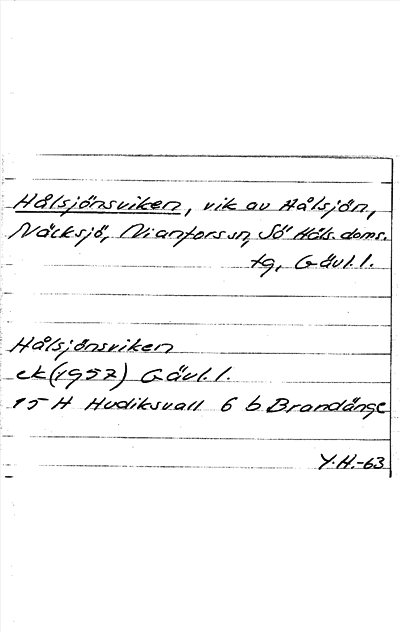 Hålsjönsviken, vik av Hålsjön,
Näcksjö, Nianfors sn, Sö Häls. doms.
tg, Gävl. l.
Hålsjönsviken
ek (1957) Gävl. l.
15 H Hudiksvall 6 b Brandänge
Y.H.-63